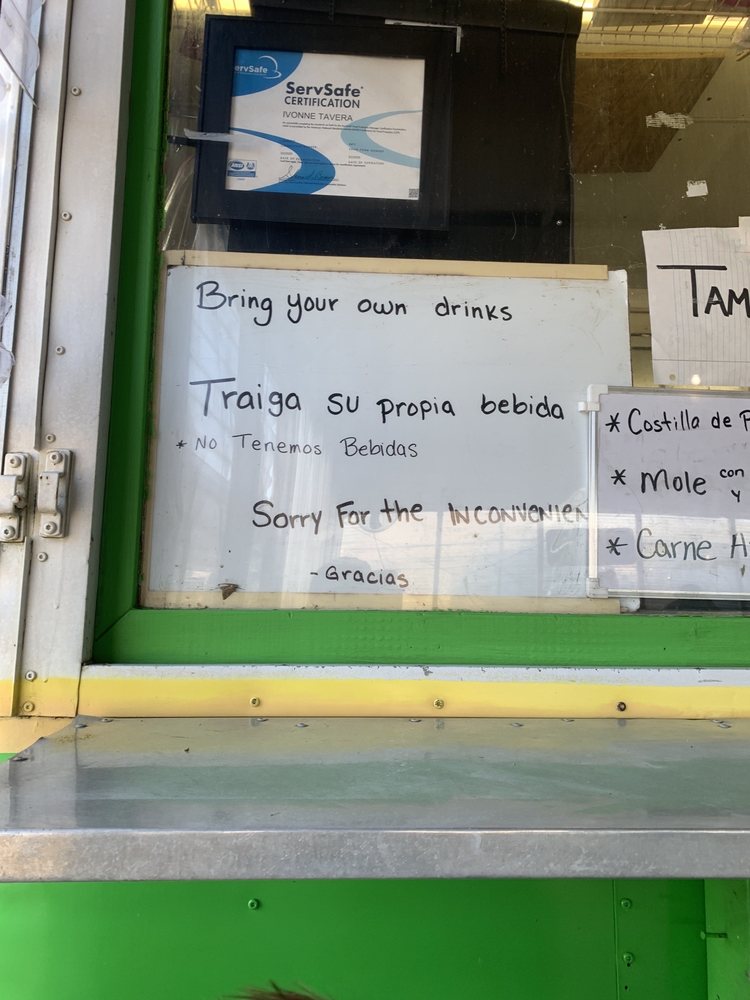 ervSafe
ServSafe®
CERTIFICATION
IVONNE TAVERA
Bring your own drinks
Traiga su propia bebida
* No Tenemos Bebidas
Sorry For the INCONVENIEN
- Gracias
TAM
* Costilla de P
* Mole con
y
* Carne A